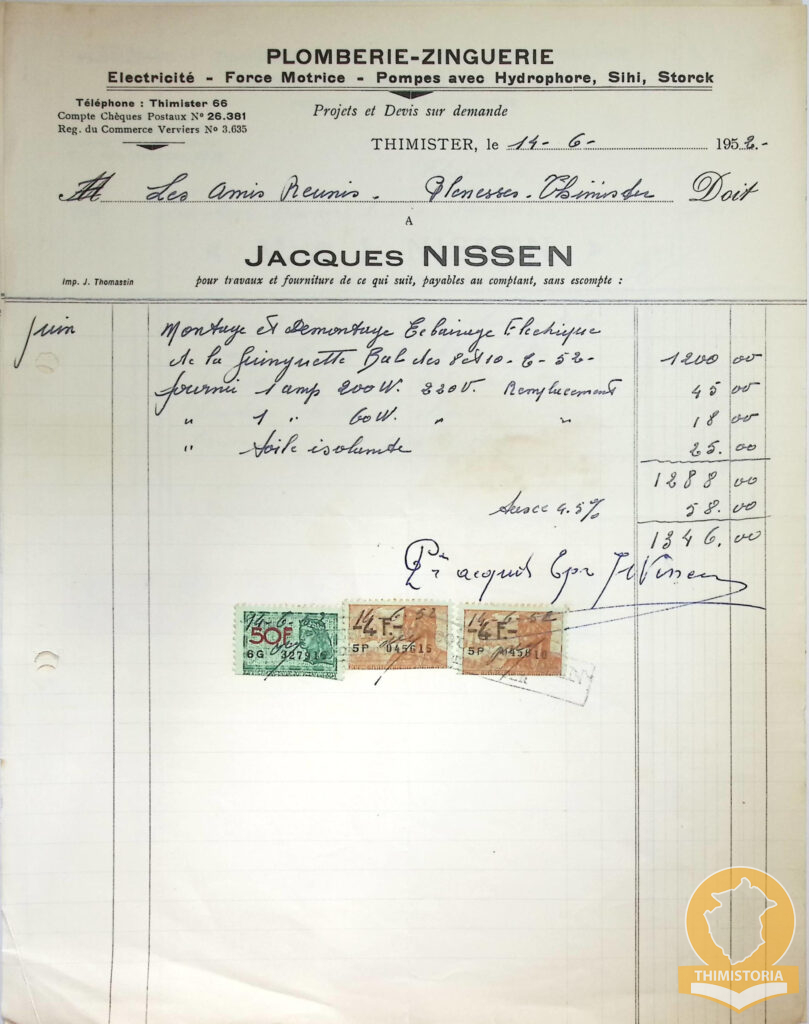 PLOMBERIE-ZINGUERIE
Electricité - Force Motrice - Pompes avec Hydrophore, Sihi, Storck
Téléphone : Thimister 66
Compte Chèques Postaux No 26.381
Reg. du Commerce Verviers No 3.635
Projets et Devis sur demande
THIMISTER, le 14-6- 1952.-
M Les Amis Reunis. Elsenesses. Thimister Doit
A
JACQUES NISSEN
Imp. J. Thomassin
pour travaux et fourniture de ce qui suit, payables au comptant, sans escompte :
Juin Montage et Demontage Eclairage Electrique
de la Guinguette Bal des 8 et 10-6-52- 1200 00
fourni 1 amp 200W. 220V. Remplacement 45 00
" 1 " 60W. " " 18 00
" toile isolante 25.00
1288 00
4.5% 58.00
1346.00
Pr acquit JNissen
14-6-52
50F
6G 327915
14-6-52
-4F.-
5P 045615
14-6-52
-4F.-
5P
THIMISTORIA